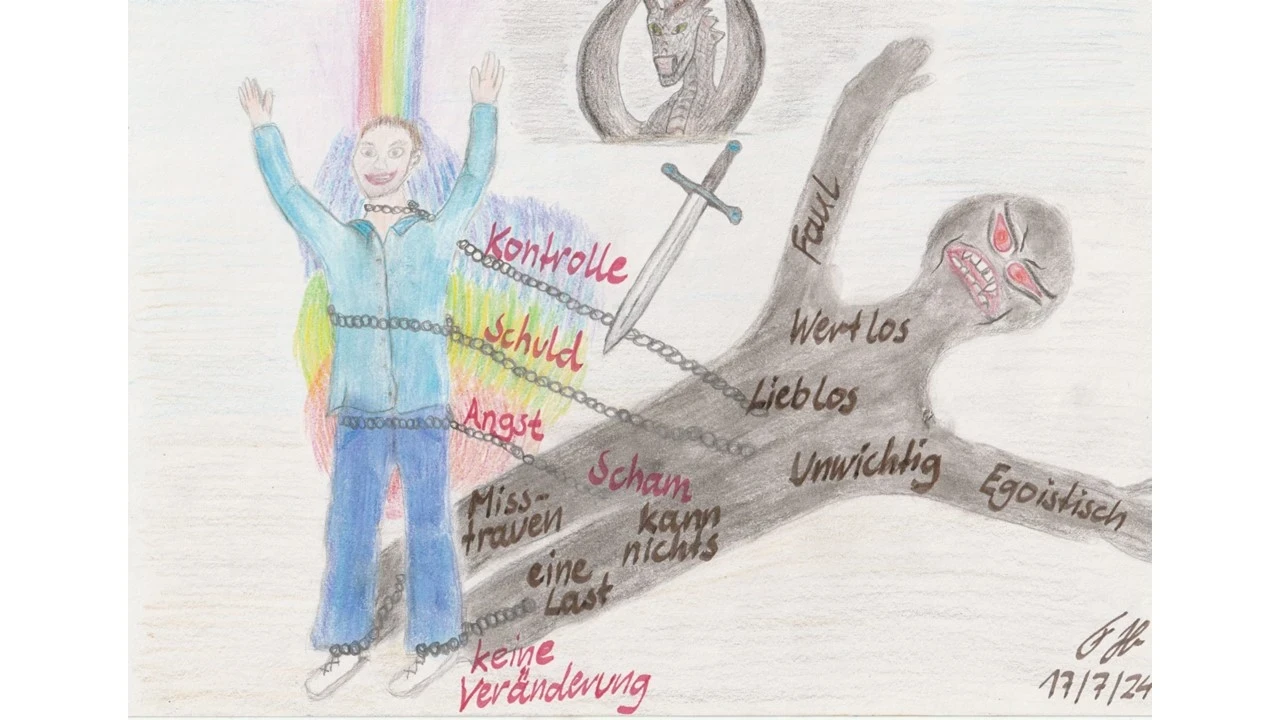 Kontrolle
Faul
Schuld
Wertlos
Lieblos
Angst
Unwichtig
Egoistisch
Scham
Miss-
trauen
kann
nichts
eine
Last
keine
Veränderung
17/7/24